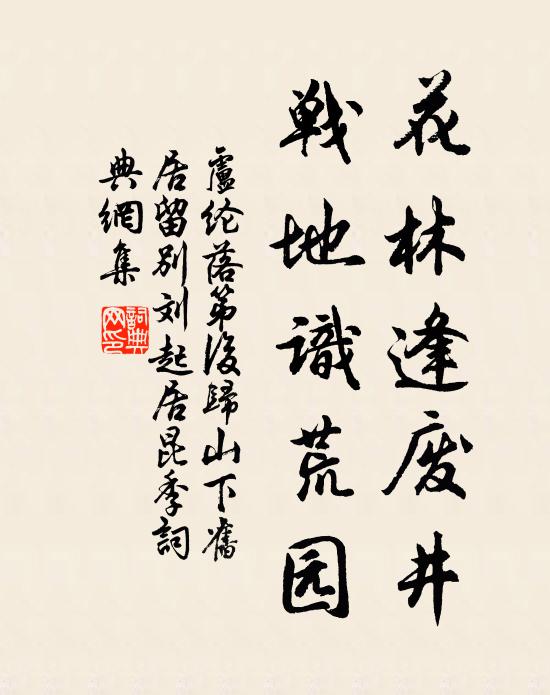 花林逢废井
戦地識荒园
盧纶落第後歸山下舊
居留别刘起居昆季詞
典網集
詞典网印